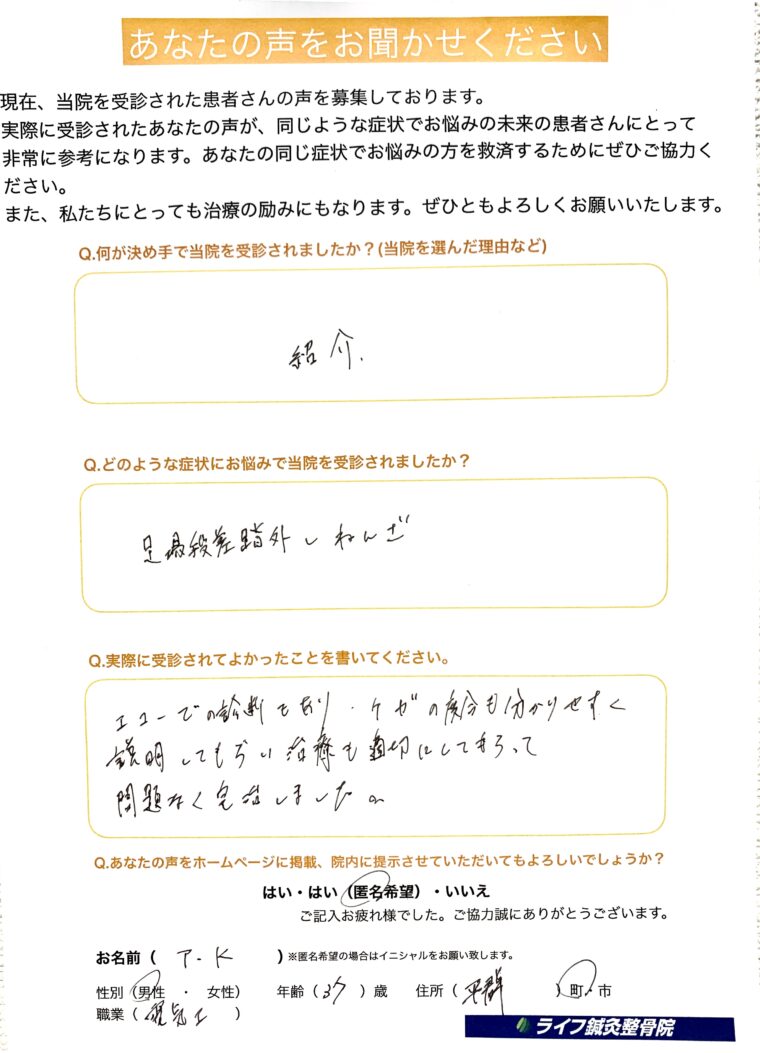 あなたの声をお聞かせください
現在、当院を受診された患者さんの声を募集しております。
実際に受診されたあなたの声が、同じような症状でお悩みの未来の患者さんにとって
非常に参考になります。あなたの同じ症状でお悩みの方を救済するためにぜひご協力く
ださい。
また、私たちにとっても治療の励みにもなります。ぜひともよろしくお願いいたします。
Q.何が決め手で当院を受診されましたか？(当院を選んだ理由など)
紹介.
Q.どのような症状にお悩みで当院を受診されましたか？
段差踏外しねんざ
Q.実際に受診されてよかったことを書いてください。
エコーでの診断もあり・ケガの部分も分かりやすく
説明してもらい治療も適切にしてもらって
問題なく完治しました。
Q.あなたの声をホームページに掲載、院内に提示させていただいてもよろしいでしょうか？
はい・はい（匿名希望）・いいえ
ご記入お疲れ様でした。ご協力誠にありがとうございます。
お名前（ ア・K ）※匿名希望の場合はイニシャルをお願い致します。
性別（男性 ・ 女性） 年齢（37）歳 住所（平群）町・市
職業（電気工）
ライフ鍼灸整骨院